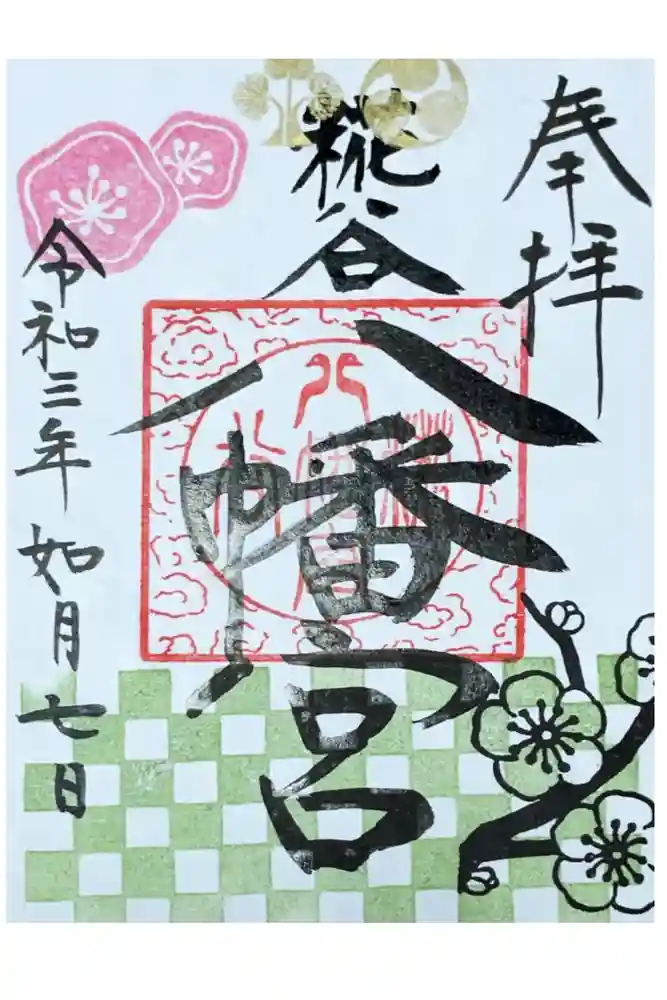 奉拝
糀谷
八幡宮
令和三年如月七日